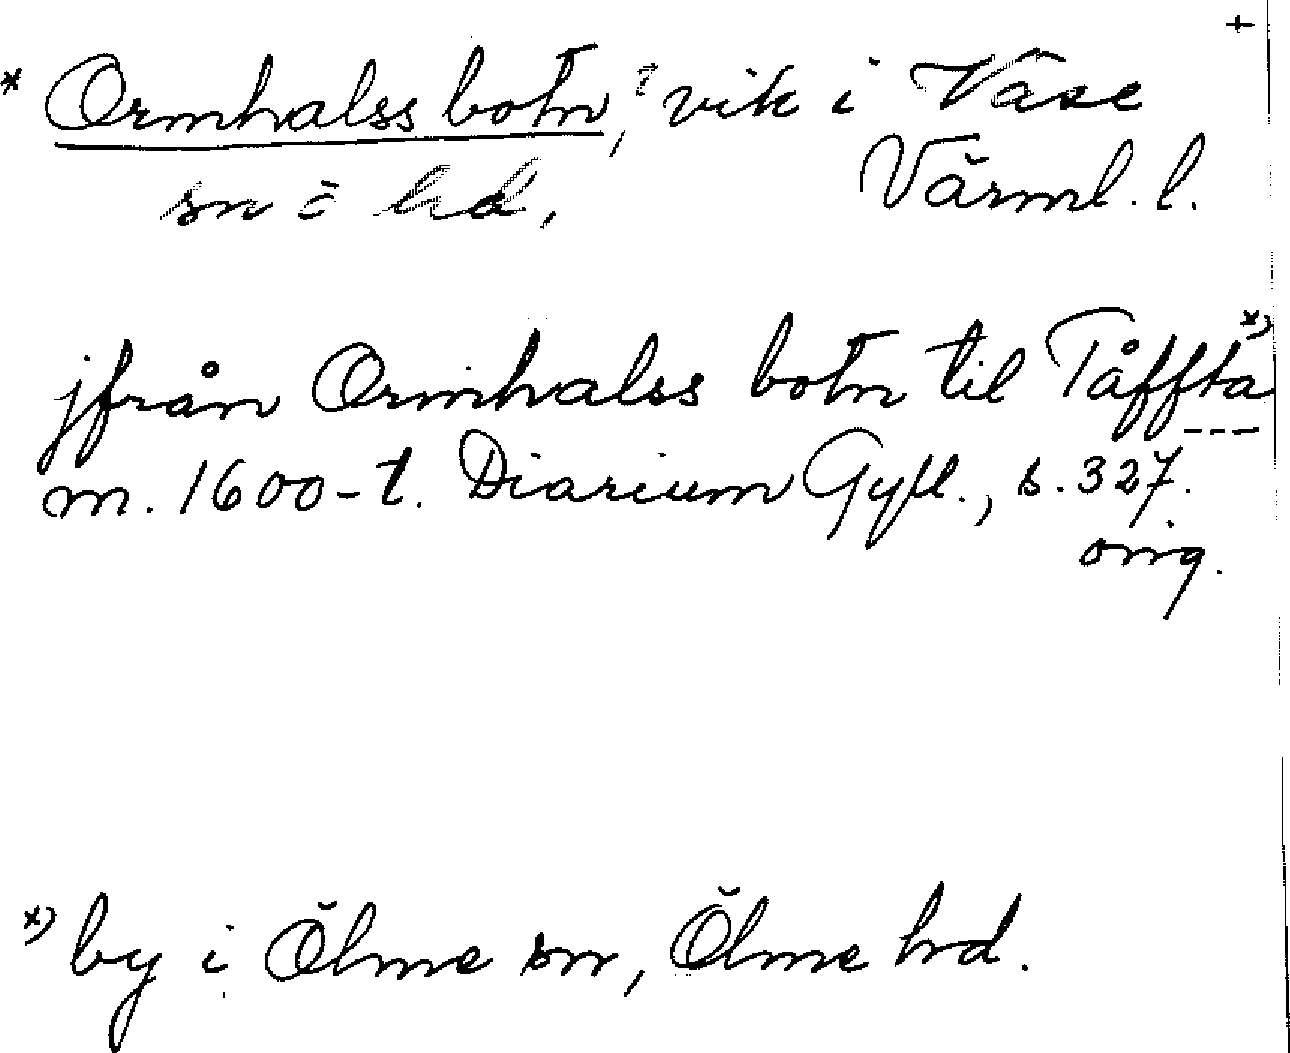 +
* Ormhalss botn, ? vik i Väse
sn o hd, Värml. l.
jfrån Ormhalss botn til Tåffta *)
m. 1600-t. Diarium Gyll., s. 327.
orig.
*) by i Ölme sn, Ölme hd.